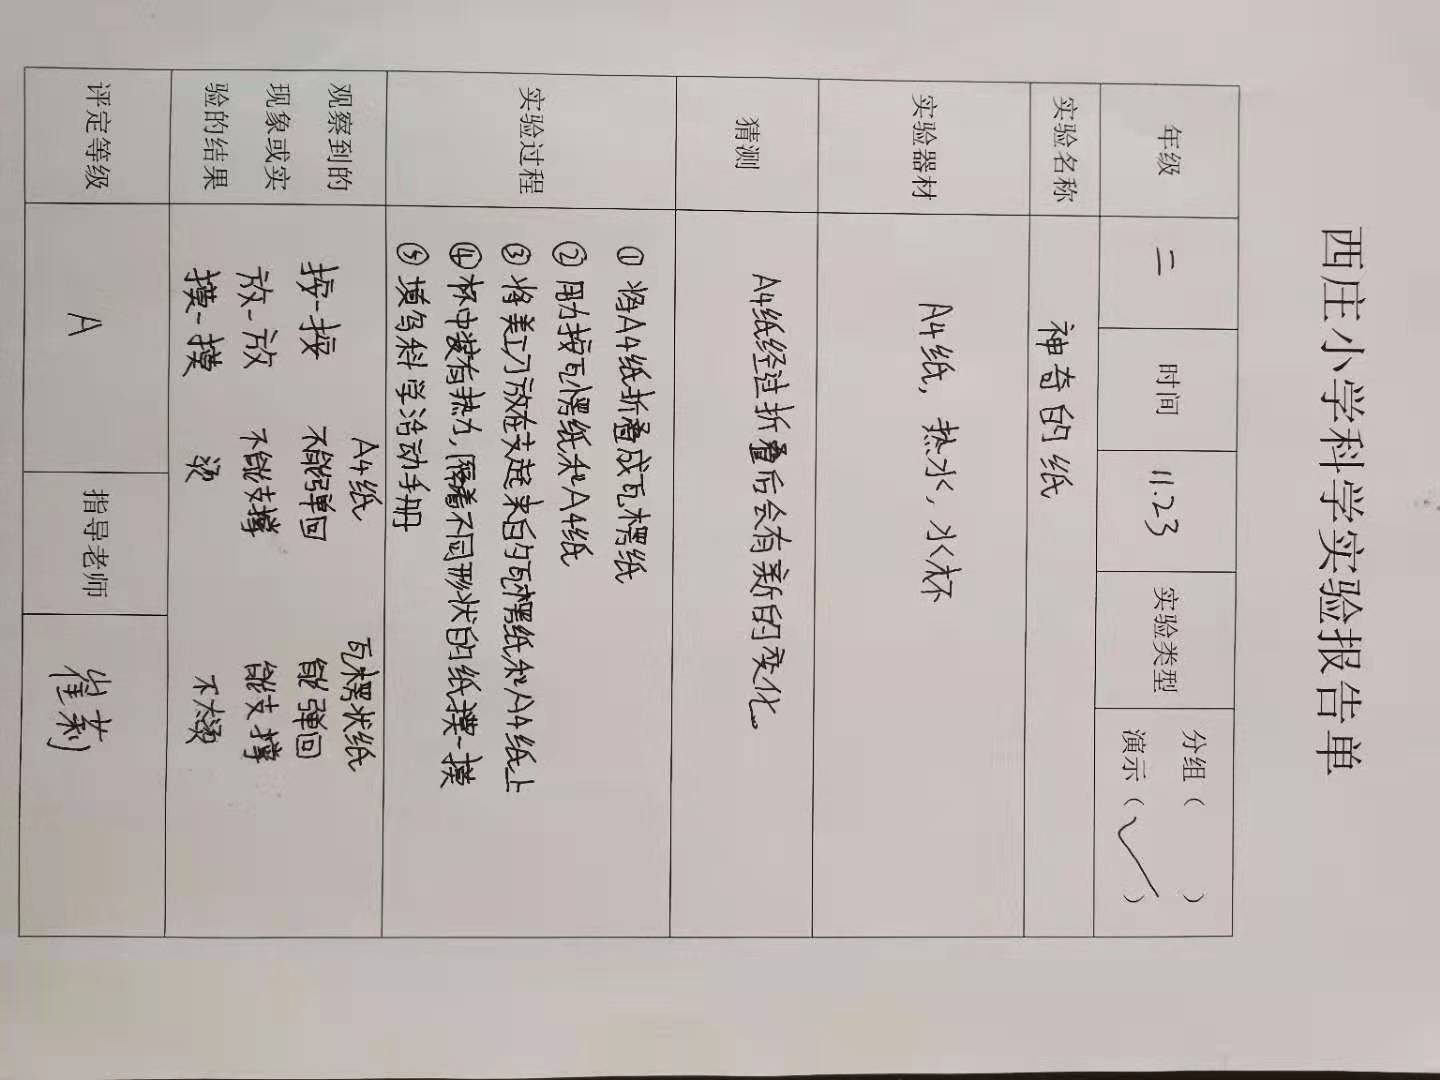 西庄小学科学实验报告单
年级 二 时间 11.23 实验类型 分组（ ）
演示（✓）
实验名称 神奇的纸
实验器材 A4纸，热水，水杯
猜测 A4纸经过折叠后会有新的变化。
实验过程
① 将A4纸折叠成瓦楞纸
② 用力按瓦楞纸和A4纸
③ 将美工刀放在支起来的瓦楞纸和A4纸上
④ 杯中装有热水，隔着不同形状的纸摸一摸
⑤ 填写科学活动手册
观察到的现象或实验的结果
A4纸 瓦楞状纸
按一按 不能弹回 能弹回
放一放 不能支撑 能支撑
摸一摸 烫 不太烫
评定等级 A 指导老师 崔莉